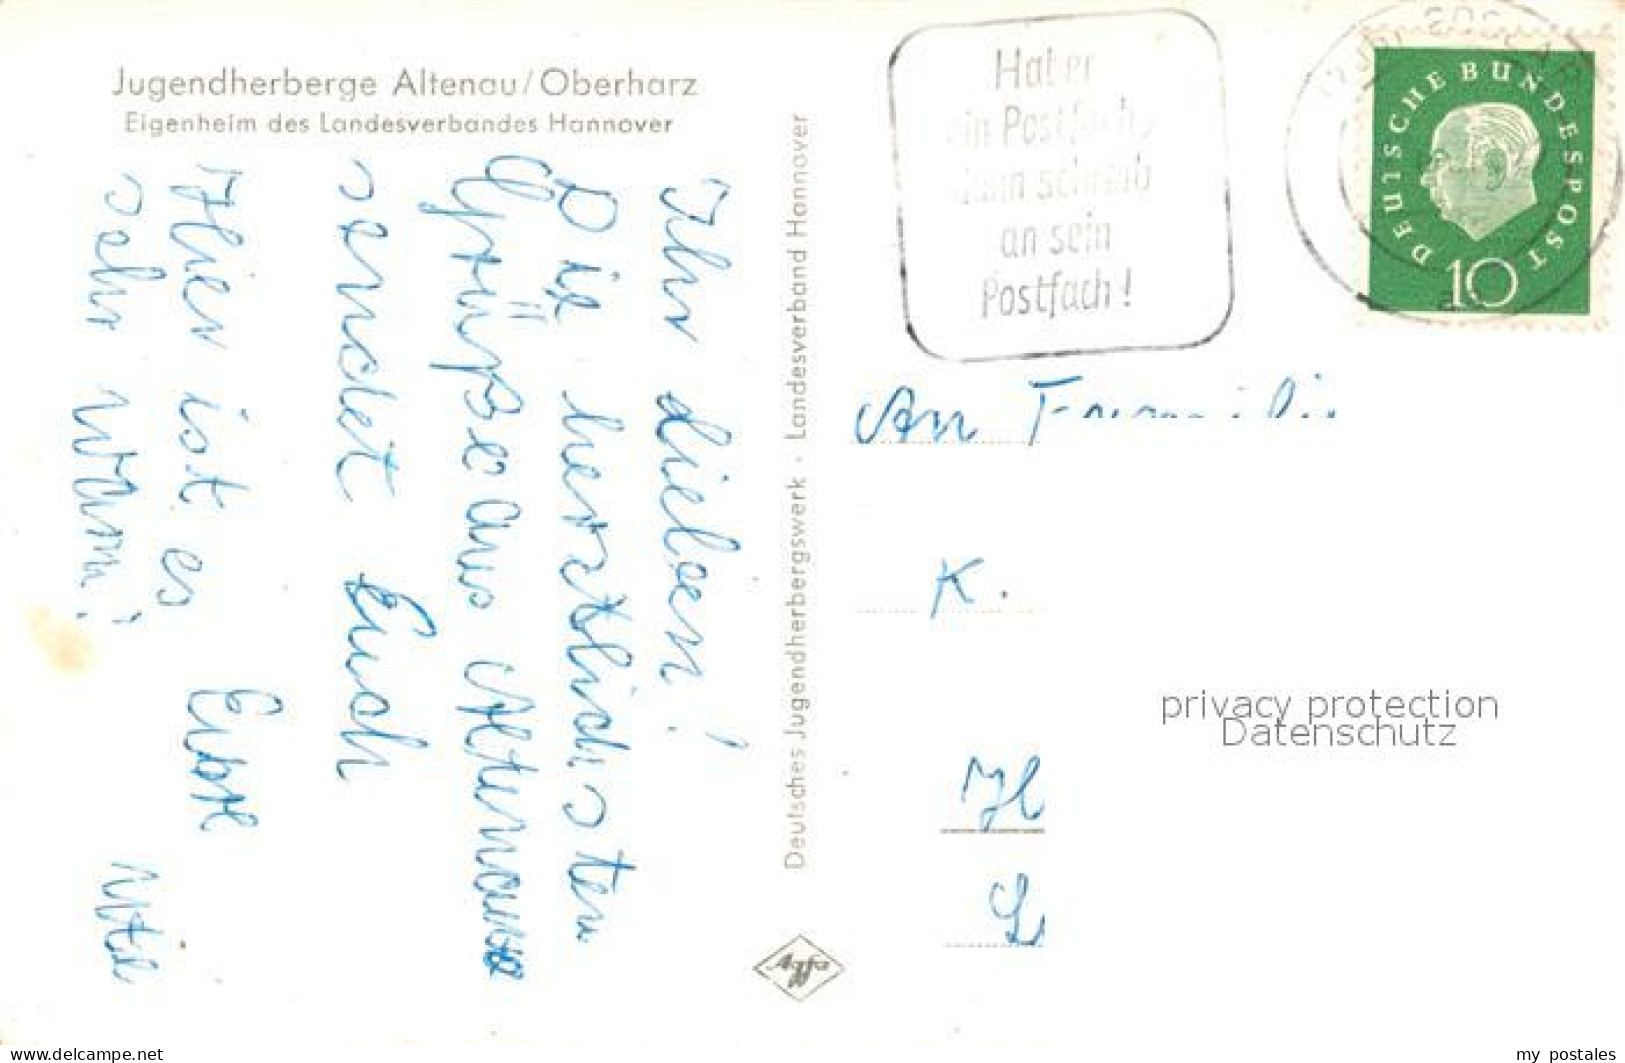 Jugendherberge Altenau/Oberharz
Eigenheim des Landesverbandes Hannover
Ihr lieben!
Die herzlichsten
Grüße aus Altenau
sendet Euch
Eure
Ute
Hier ist es
sehr warm!
Deutsches Jugendherbergswerk · Landesverband Hannover
Agfa
Hat er
ein Postfach,
dann schreib
an sein
Postfach!
DEUTSCHE BUNDESPOST
10
An Familie
K.
H
L
privacy protection
Datenschutz
www.delcampe.net
my_postales